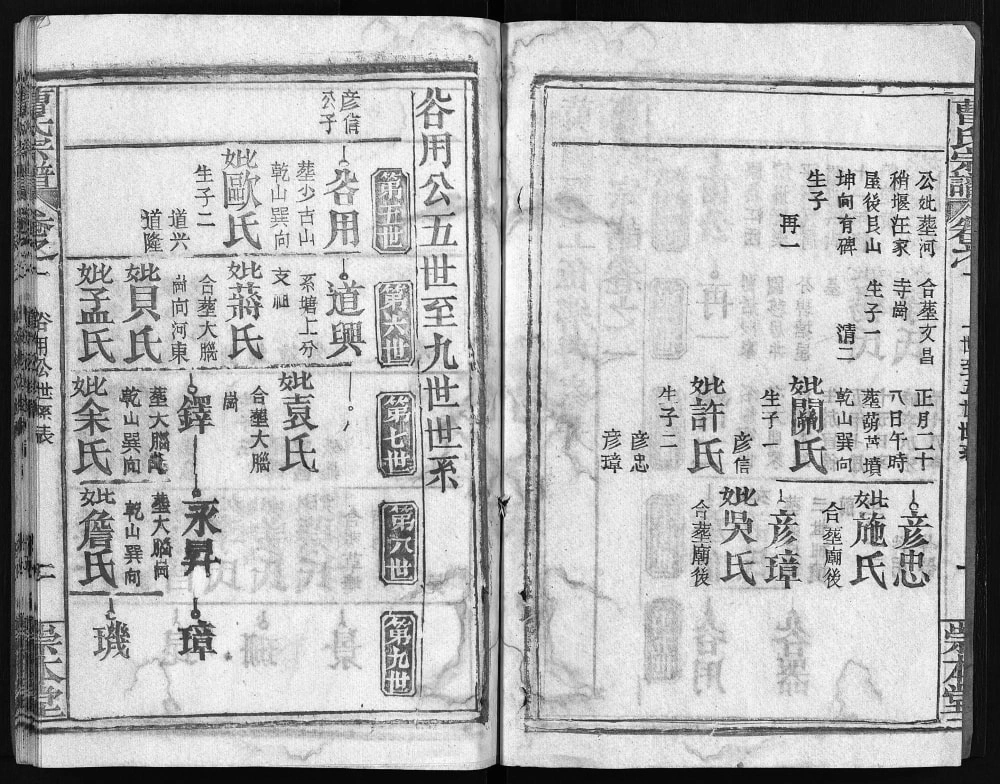 曹氏宗譜
卷之一
一世至五世世系
崇本堂
公妣塟河
稍堰汪家
屋後艮山
坤向有碑
生子
再一
合塟文昌
寺崗
生子一
清二
正月二十
八日午時
塟葫芦墳
乾山巽向
妣關氏
生子一
彦信
妣許氏
生子二
彦忠
彦璋
彦忠
妣施氏
合塟廟後
彦璋
妣吳氏
合塟廟後
谷用公五世至九世世系
第五世
第六世
第七世
第八世
第九世
彦信
公子
谷用
塟少古山
乾山巽向
妣歐氏
生子二
道兴
道隆
道興
系塘上分
支祖
妣蔣氏
合塟大腦
崗向河東
妣貝氏
妣孟氏
妣袁氏
合塟大腦
崗
鐸
塟大腦崗
乾山巽向
妣余氏
永昇
塟大腦崗
乾山巽向
妣詹氏
璋
璣
曹氏宗譜
卷之一
谷用公世系表
二
崇本堂